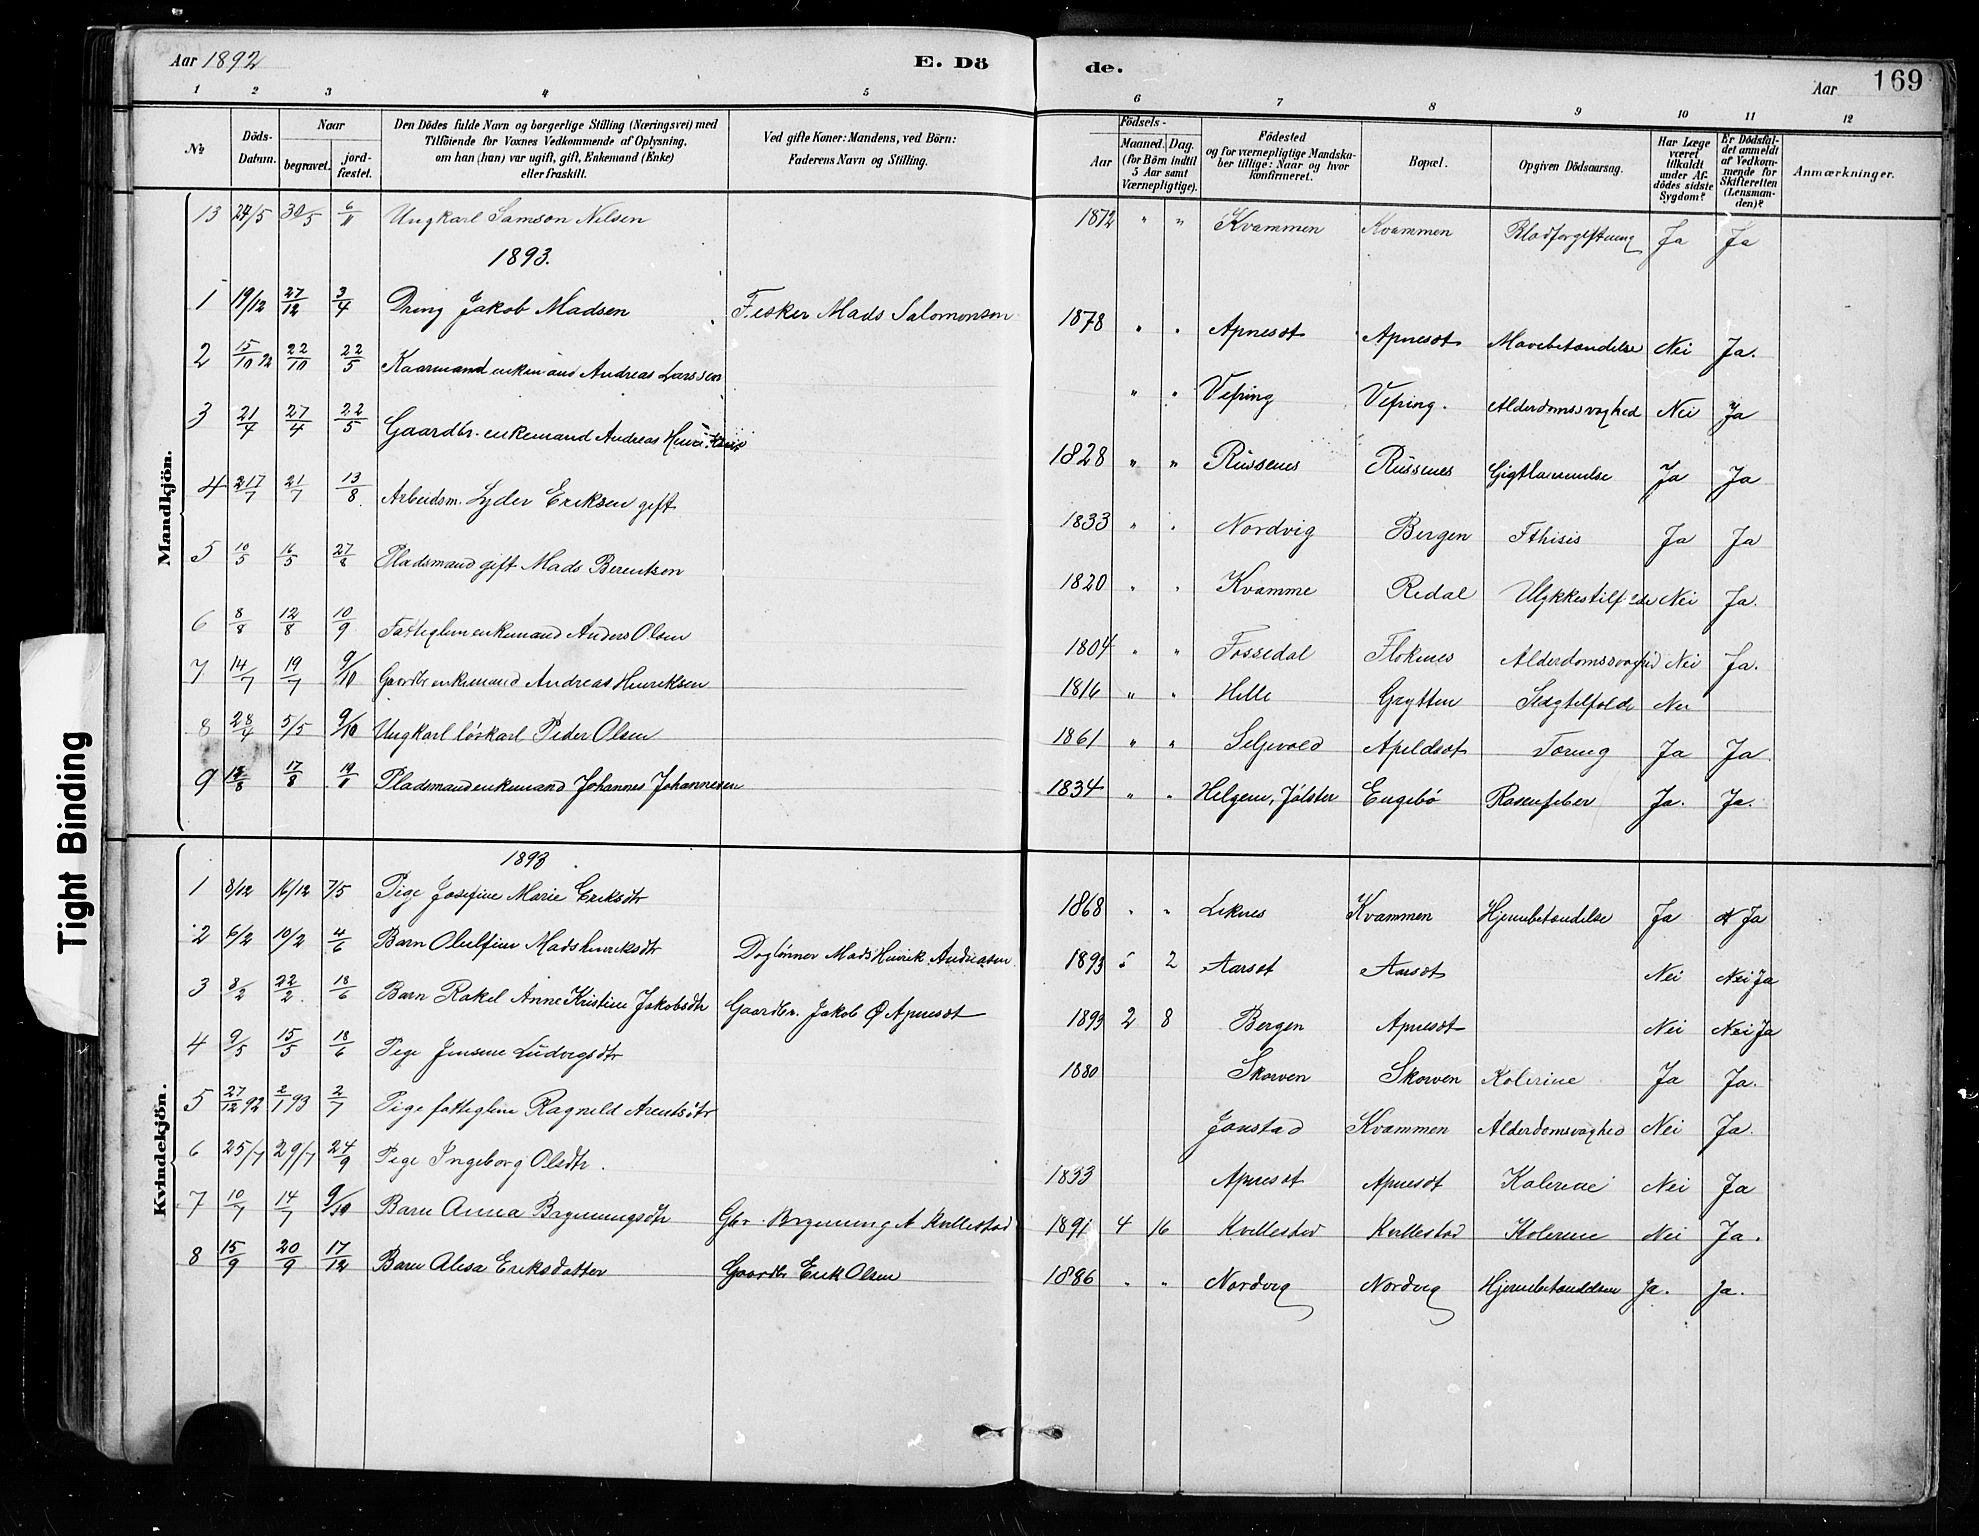 Aar 1892 E. Dö de. Aar 169
1 2 3 4 5 6 7 8 9 10 11 12
№ Döds-Datum. Naar begravet. jord-fæstet. Den Dödes fulde Navn og borgerlige Stilling (Næringsvei) med Tilföiende for Voxnes Vedkommende af Oplysning, om han (han) var ugift, gift, Enkemand (Enke) eller fraskilt. Ved gifte Koner: Mandens, ved Börn: Faderens Navn og Stilling. Födsels- Aar Maaned. Dag. (for Börn indtil 5 Aar samt Værnepligtige). Födested og for værnepligtige Mandskaber tillige: Naar og hvor konfirmeret. Bopæl. Opgiven Dödsaarsag. Har Læge været tilkaldt under Afdödes sidste Sygdom? Er Dödsfaldet anmeldt af Vedkommende for Skifteretten (Lensmanden)? Anmærkninger.
Mandkjön.
13 24/5 30/5 Ungkarl Samson Nilsen 1872 " " Kvammen Kvammen Blodforgiftning Ja Ja
1893.
1 19/12 27/12 3/4 Dreng Jakob Madsen Fisker Mads Salomonsen 1878 " " Apnesæt Apnesæt Mavebetændelse Nei Ja.
2 15/10 92 22/10 22/5 Kaarmand enkemand Andreas Larssen " " Vefring Vefring. Alderdomssvaghed Nei Ja
3 21/4 27/4 22/5 Gaardbr. enkemand Andreas 1828 " " Russenes Russenes Ja Ja
4 21/7 13/8 Arbeidsm. Lyder Eriksen gift 1833 " " Nordvig Bergen Fthisis Ja Ja
5 10/5 16/5 27/8 Pladsmand gift Mads Berentsen 1820 " " Kvamme Redal Nei Ja.
6 8/8 12/8 10/9 Fattiglem enkemand Anders Olsen 1804 " " Fossedal Floknes Alderdomssvaghed Nei Ja.
7 14/7 19/7 9/10 Gaardbr enkemand Andreas Henriksen 1816 " " Helle Grytten Slagtilfælde Nei
8 28/4 5/5 9/10 Ungkarl löskarl Peder Olsen 1861 " " Seljevold Apeldsæt Tæring Ja Ja.
9 17/8 Pladsmand enkemand Johannes Johannesen 1834 " " Helgem, Jölster Engebö Rosenfeber Ja. Ja.
Kvindekjön.
1893
1 8/12 16/12 7/5 Pige Josefine Marie Eriksdtr 1868 " " Leknes Kvammen Hjernebetændelse Ja Ja
2 6/2 10/2 4/6 Barn Olulfine Madshenriksdtr Daglönner Mads Henrik Andreasen. 1893 5 2 Aarsæt Aarsæt Nei Nei Ja
3 8/2 22/2. 18/6 Barn Rakel Anne Kristine Jakobsdtr Gaardbr. Jakob Ø Apnesæt 1893 2 8 Bergen Apnesæt Nei Nei Ja
4 9/5 15/5 18/6 Pige Jensine Ludvigsdtr 1880 Skorven Skorven Kolerine Ja Ja.
5 27/12 92 2/1 93 2/7 Pige fattiglem Ragnild Arentsdtr Jonstad Kvammen Alderdomsvaghed Nei Ja.
6 25/7 29/7 24/9 Pige Ingeborg Olsdtr. 1833 Apnesæt Apnesæt Kolerine Nei Ja
7 10/7 14/7 9/10 Barn Anna Brynningsdtr Gbr. Brynning A Kvillestad 1891 4 16 Kvillestad Kvillestad Kolerine Nei Ja.
8 15/9 20/9 17/12 Barn Alisa Eriksdatter Gaardbr Erik Olsen 1886 " " Nordvig Nordvig Hjernebetændelsen Ja. Ja.
Tight Binding